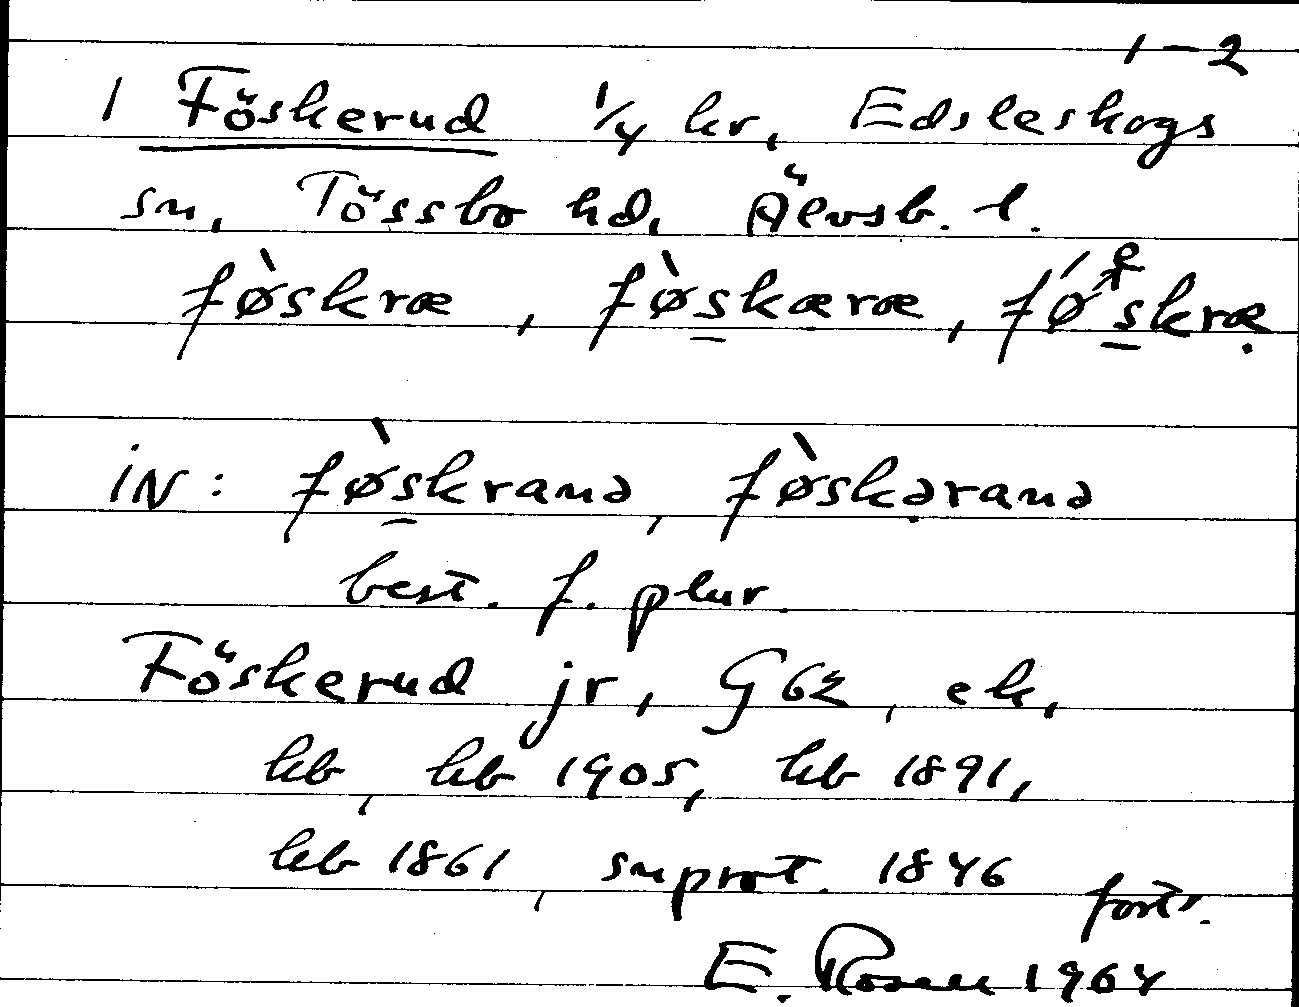 1-2
1 Föskerud 1/4 kr, Edsleskogs
sn, Tössbo hd, Älvsb. l.
fø̀skræ, fø̀skæræ, fǿskræ
iN: fø̀skranə, fø̀skəranə
best. f. plur.
Föskerud jr, G62, ek,
kb, kb 1905, kb 1891,
kb 1861, snprot. 1846 forts.
E. Rosell 1964